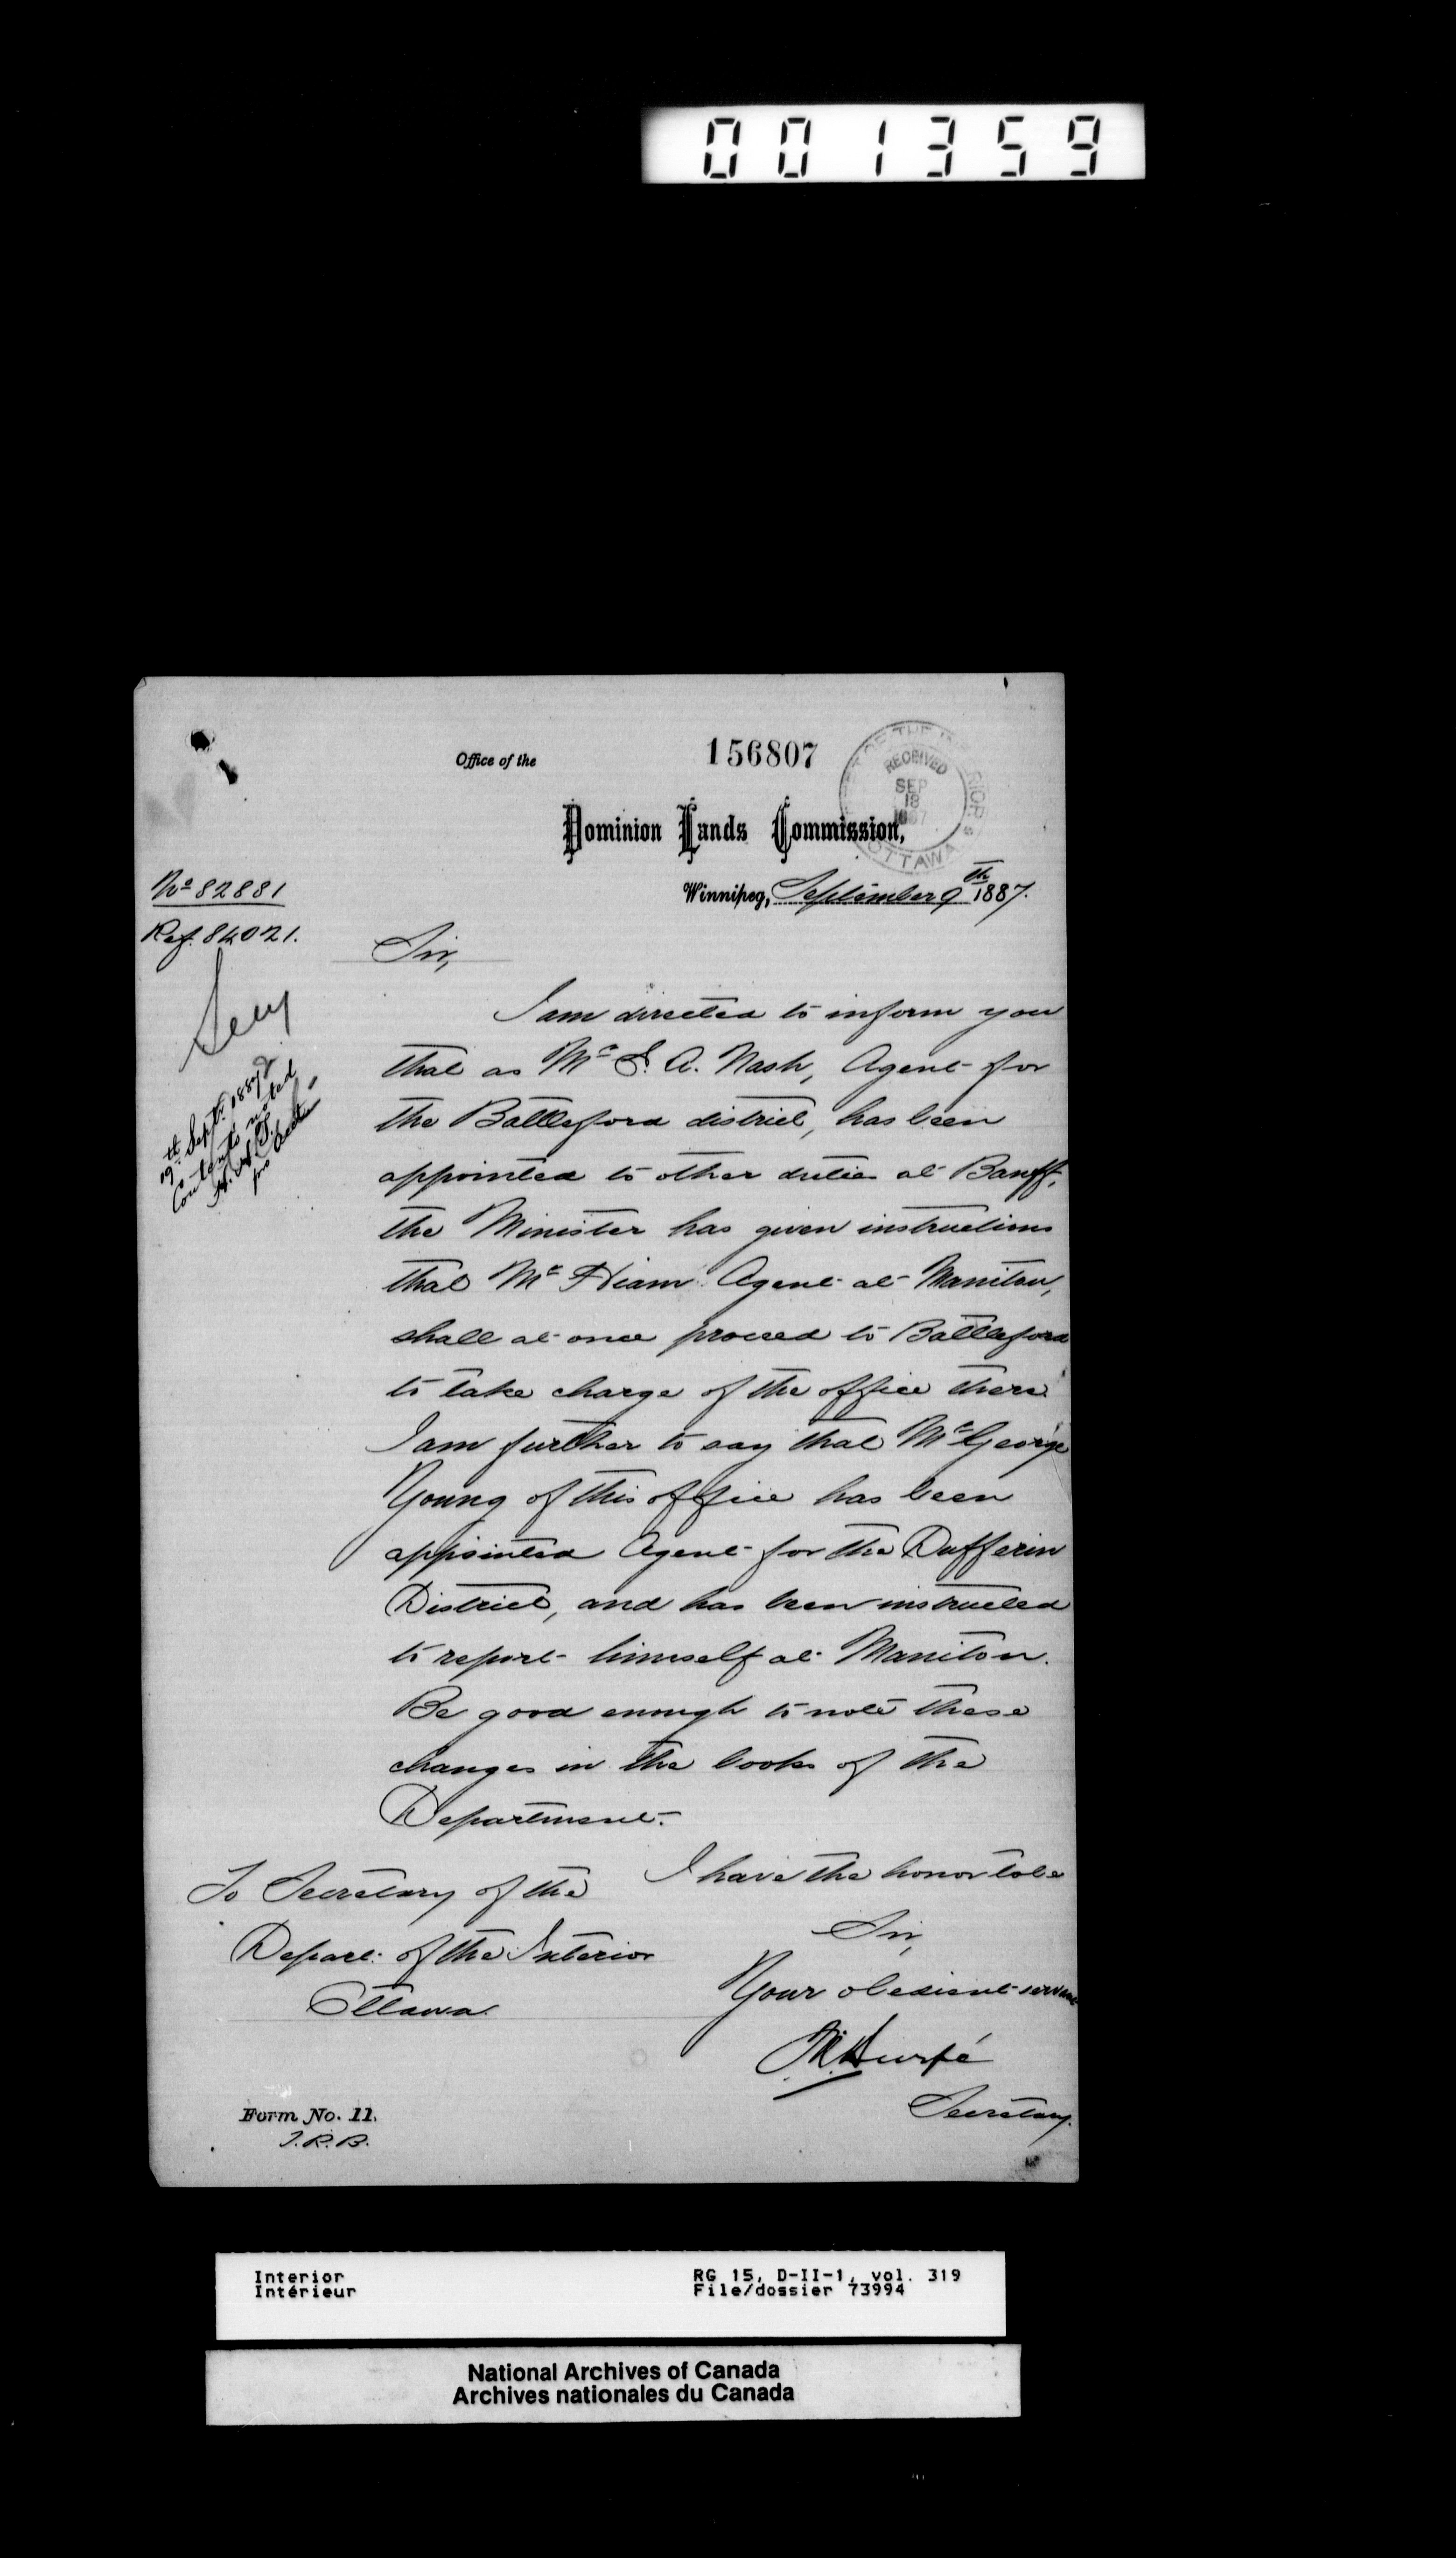 001359
156807
Office of the
DEPT OF THE INTERIOR
RECEIVED
SEP
18
1887
OTTAWA
Dominion Lands Commission,
Winnipeg, September 9th 1887.
No 82881
Ref. 84021.
Secy
19th Sept. 1887
Contents noted
pro
Sir,
I am directed to inform you
that as Mr. A. Nash, Agent for
the Battleford district, has been
appointed to other duties at Banff,
the Minister has given instructions
that Mr Hiam Agent at Manitou,
shall at once proceed to Battleford
to take charge of the office there.
I am further to say that Mr George
Young of this office has been
appointed Agent for the Dufferin
District, and has been instructed
to report himself at Manitou.
Be good enough to note these
changes in the books of the
Department.
I have the honor to be
Sir,
Your obedient servant
Secretary.
To Secretary of the
Depart. of the Interior
Ottawa
Form No. 11.
J.R.B.
Interior
Intérieur
RG 15, D-II-1, vol. 319
File/dossier 73994
National Archives of Canada
Archives nationales du Canada